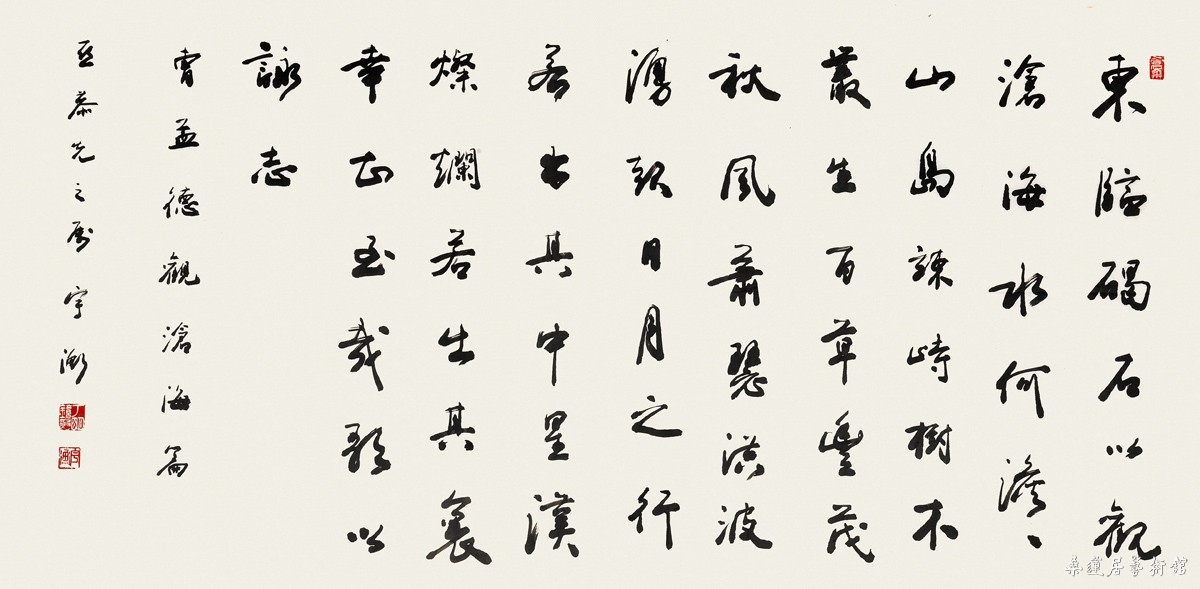 東臨碣石以觀
滄海水何澹〻
山島竦峙樹木
叢生百草豐茂
秋風蕭瑟洪波
湧起日月之行
若出其中星漢
燦爛若出其裏
幸甚至哉歌以
詠志
曹孟德觀滄海篇
先之属 宇
桑蓮居藝術館